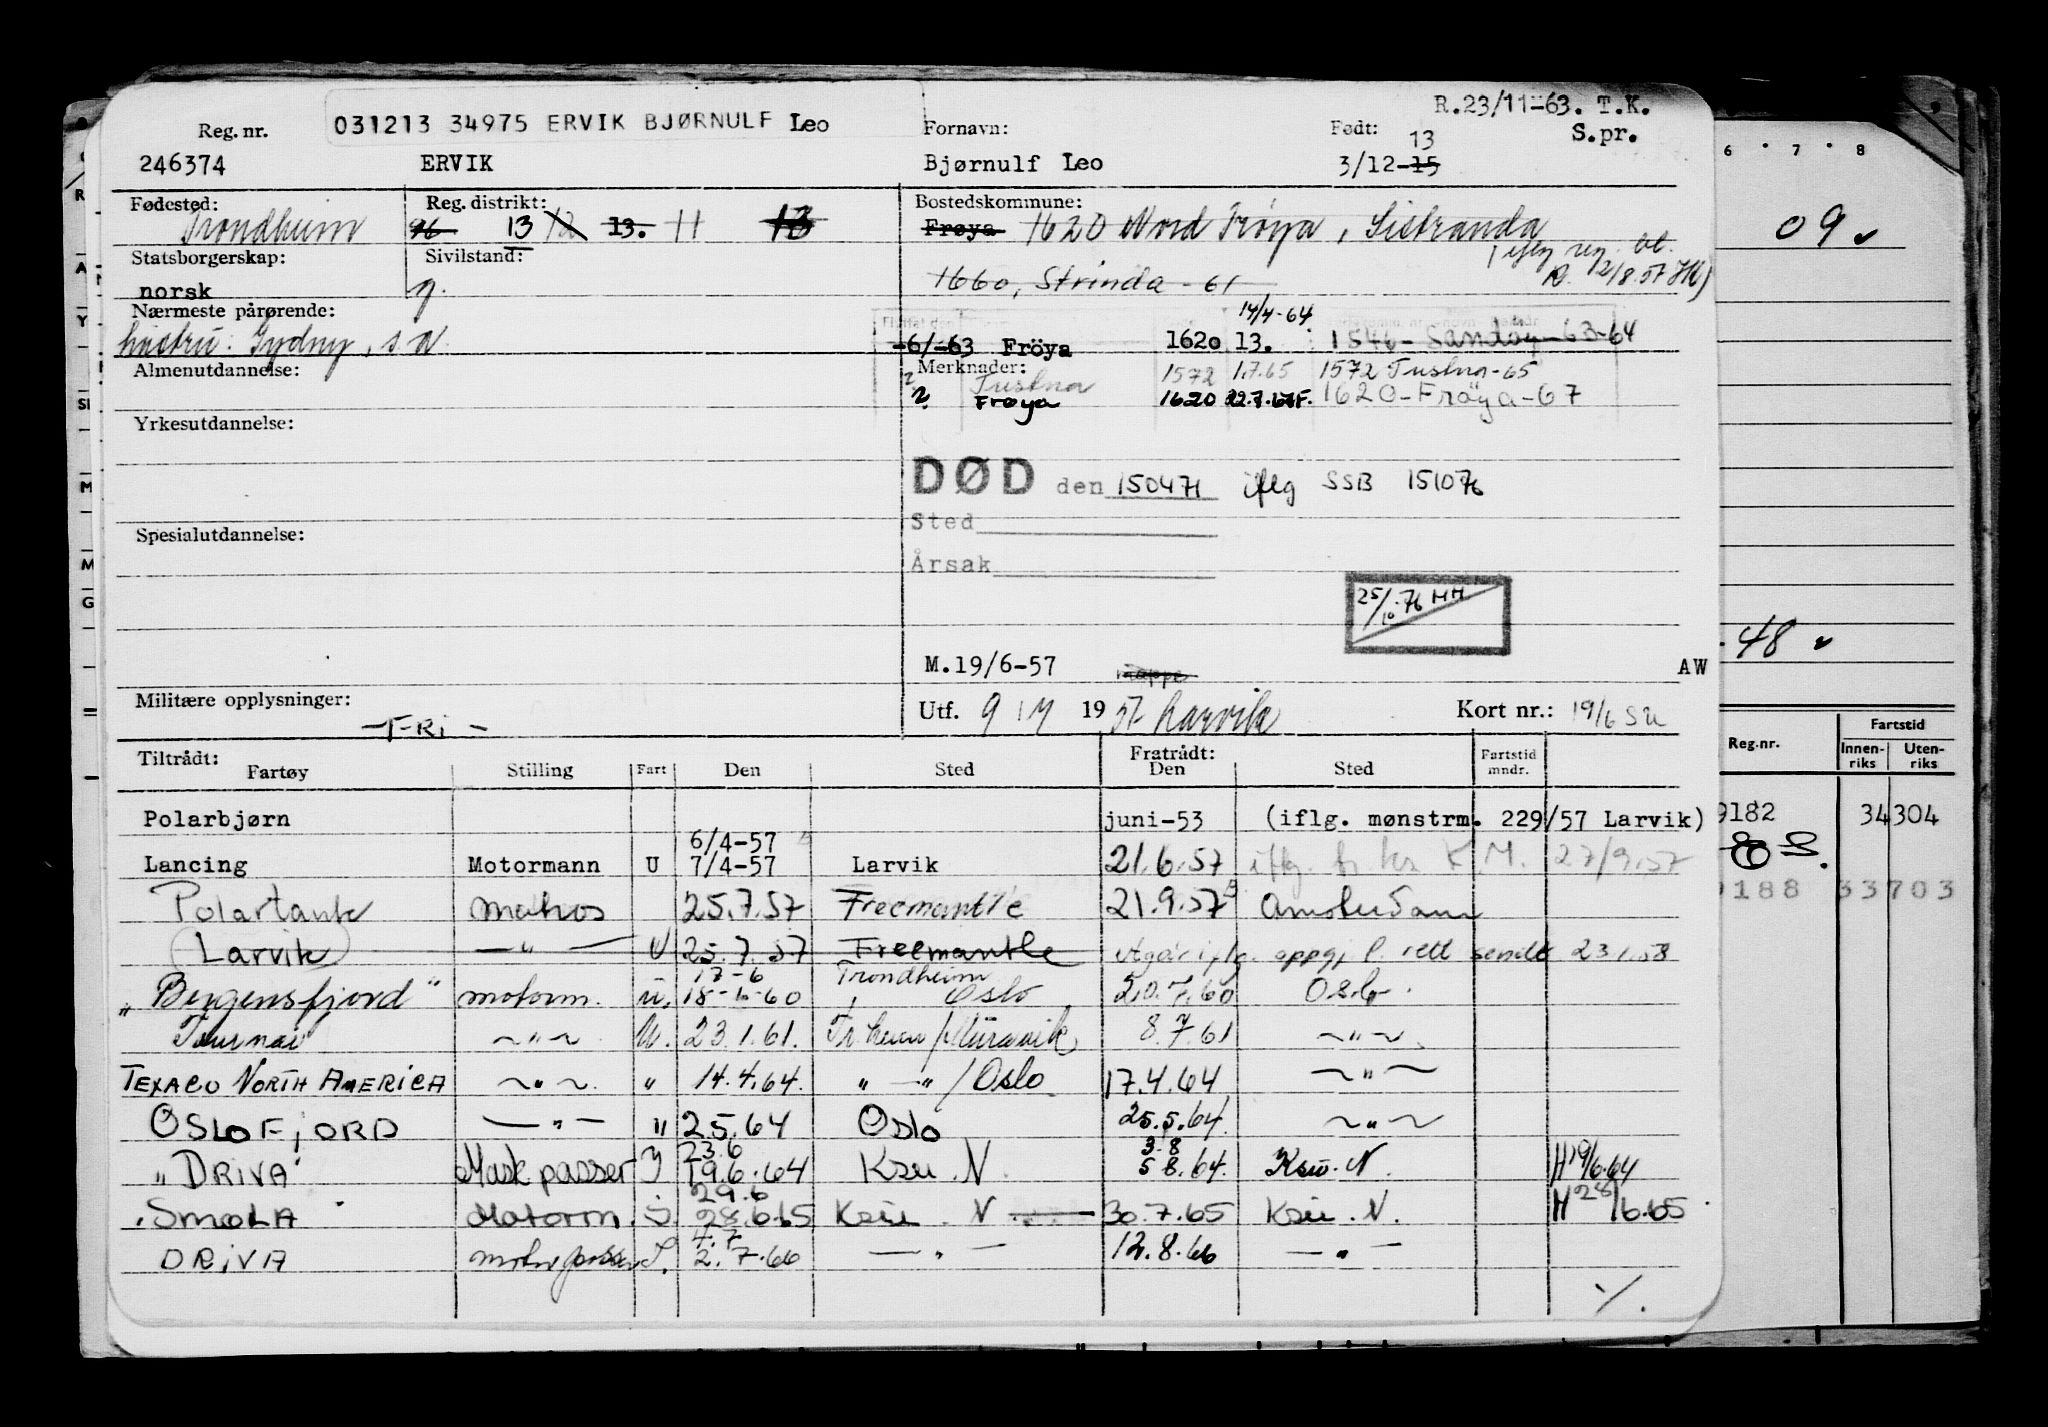 R.23/11-63. T.K.
031213 34975 ERVIK BJØRNULF Leo
Reg. nr. Fornavn: Født: 13 S.pr.
246374 ERVIK Bjørnulf Leo 3/12-15
Fødested: Reg. distrikt: Bostedskommune:
Trondheim 96 13 12 13. 11 13 Frøya 1620 Nord Frøya, Sistranda
Statsborgerskap: Sivilstand:
norsk g. 1660, Strinda - 61
Nærmeste pårørende: 14/4-64
hustru: Gydny, s.a. -6/-63 Fröya 1620 13. 1546 - Sandøy - 63-64
Almenutdannelse: Merknader:
? Tustna 1572 1.7.65 1572 Tustna-65
? Frøya 1620 22.7.67F. 1620-Frøya-67
Yrkesutdannelse:
DØD den 150471 iflg SSB 151076
Sted
Spesialutdannelse:
Årsak
25/10-76 HH
M.19/6-57 mappe AW
Militære opplysninger: Utf. 9/7 1957 Larvik Kort nr.: 19/6 Su
-FRi-
Tiltrådt: Fratrådt:
Fartøy Stilling Fart Den Sted Den Sted Fartstid mndr.
Polarbjørn juni-53 (iflg. mønstrm. 229/57 Larvik)
6/4-57
Lancing Motormann U 7/4-57 Larvik 21.6.57 iflg. K.M. 27/9.57
Polartank Matros 25.7.57 Freemantle 21.9.57 Amsterdam
Larvik — " — U 25.7.57 Freemantle utgår iflg. oppgj f. rett sendt 23.1.58
17-6 Trondheim
"Bergensfjord" motorm. u. 18-6-60 Oslo 20.7.60 Oslo
Tournai ~ " ~ U. 23.1.61. Tr.heim/Mürwik 8.7.61 ~ " ~
TEXACO NORTH AMERICA ~ " ~ " 14.4.64. " — " / Oslo 17.4.64 ~ " ~
OSLOFjORD — " — " 2.5.64 Oslo 25.5.64. ~ " ~
23.6 3.8
"DRIVA" Mask passer I 19.6.64 Ksu. N 5 8.64. Ksu. N. H 19/6.64
29.6
SMØLA Motorm. I. 28.6.65 Ksu. N 30.7.65 Ksu. N. H 28/6.65
4.7
DRiVA motorpasser I. 2.7.66 — " — 12.8.66 — " —
%.
6 7 8
09
48
Reg.nr. Fartstid
Innenriks Utenriks
9182 34304
9188 33703